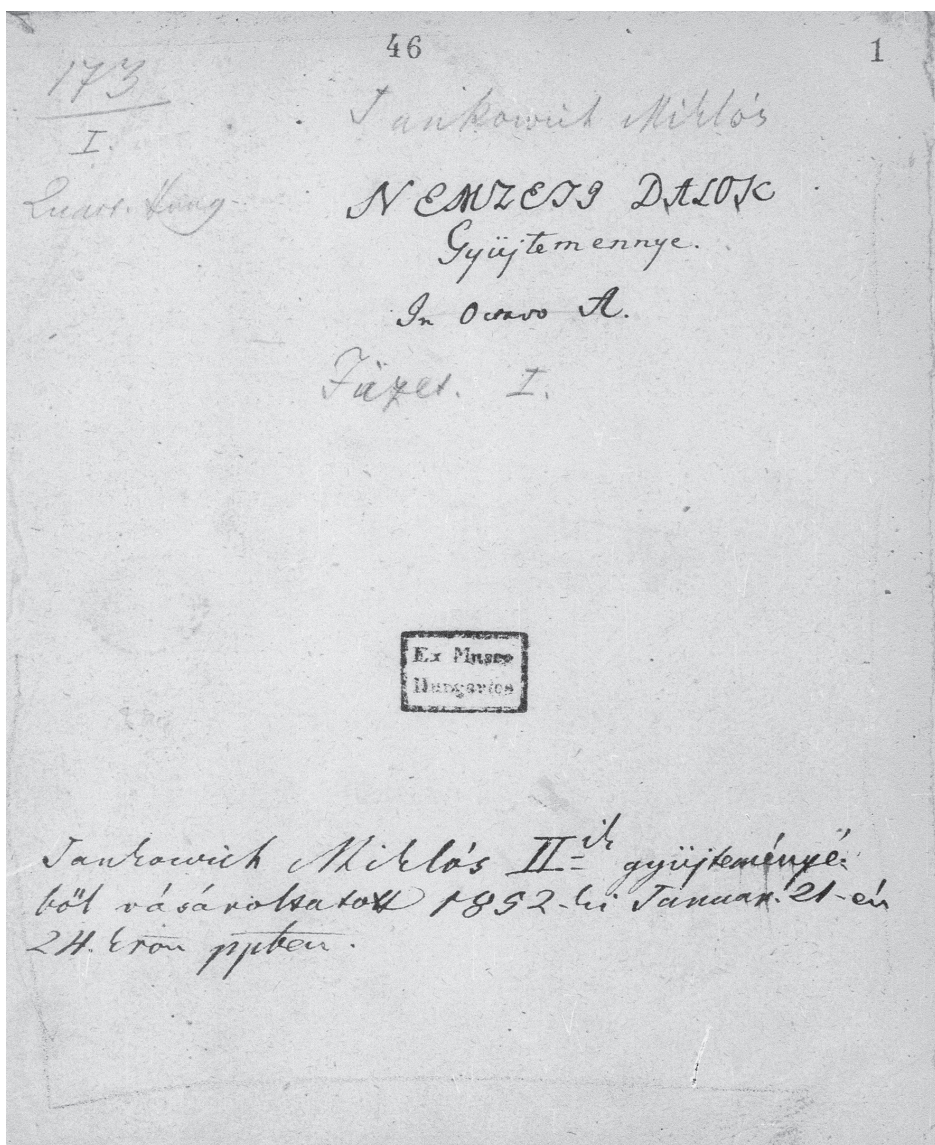 46
1
173
I.
Quart. Hung
Jankowich Miklós
NEMZETI DALOK
Gyüjtemennye.
In Octavo A.
Füzet. I.
Ex Museo
Hungarico
Jankowich Miklós II=ik gyüjteményé:
ből vásároltatott 1852-ki Januar. 21-én
24. kron ppben.